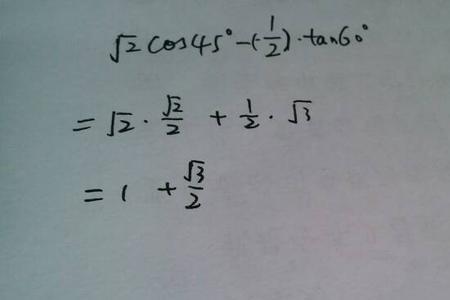 √2 cos45° - (-1/2) · tan60°
= √2 · √2/2 + 1/2 · √3
= 1 + √3/2